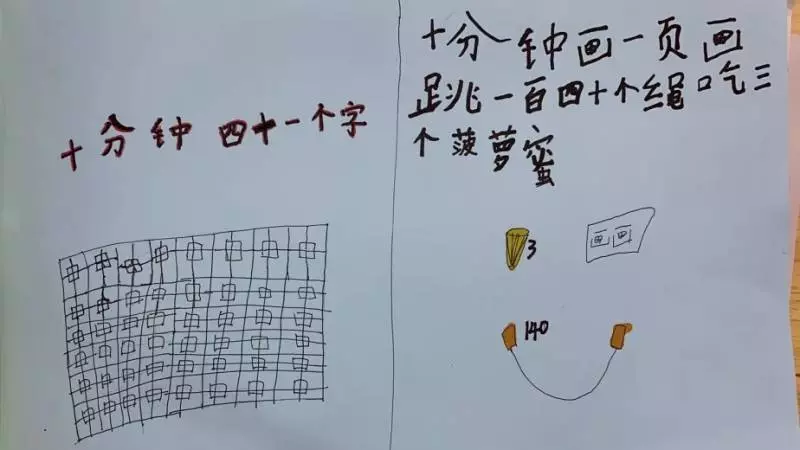 十分钟四十一个字
十分钟画一页画
跳一百四十个绳吃三
个菠萝蜜
3
画画
140